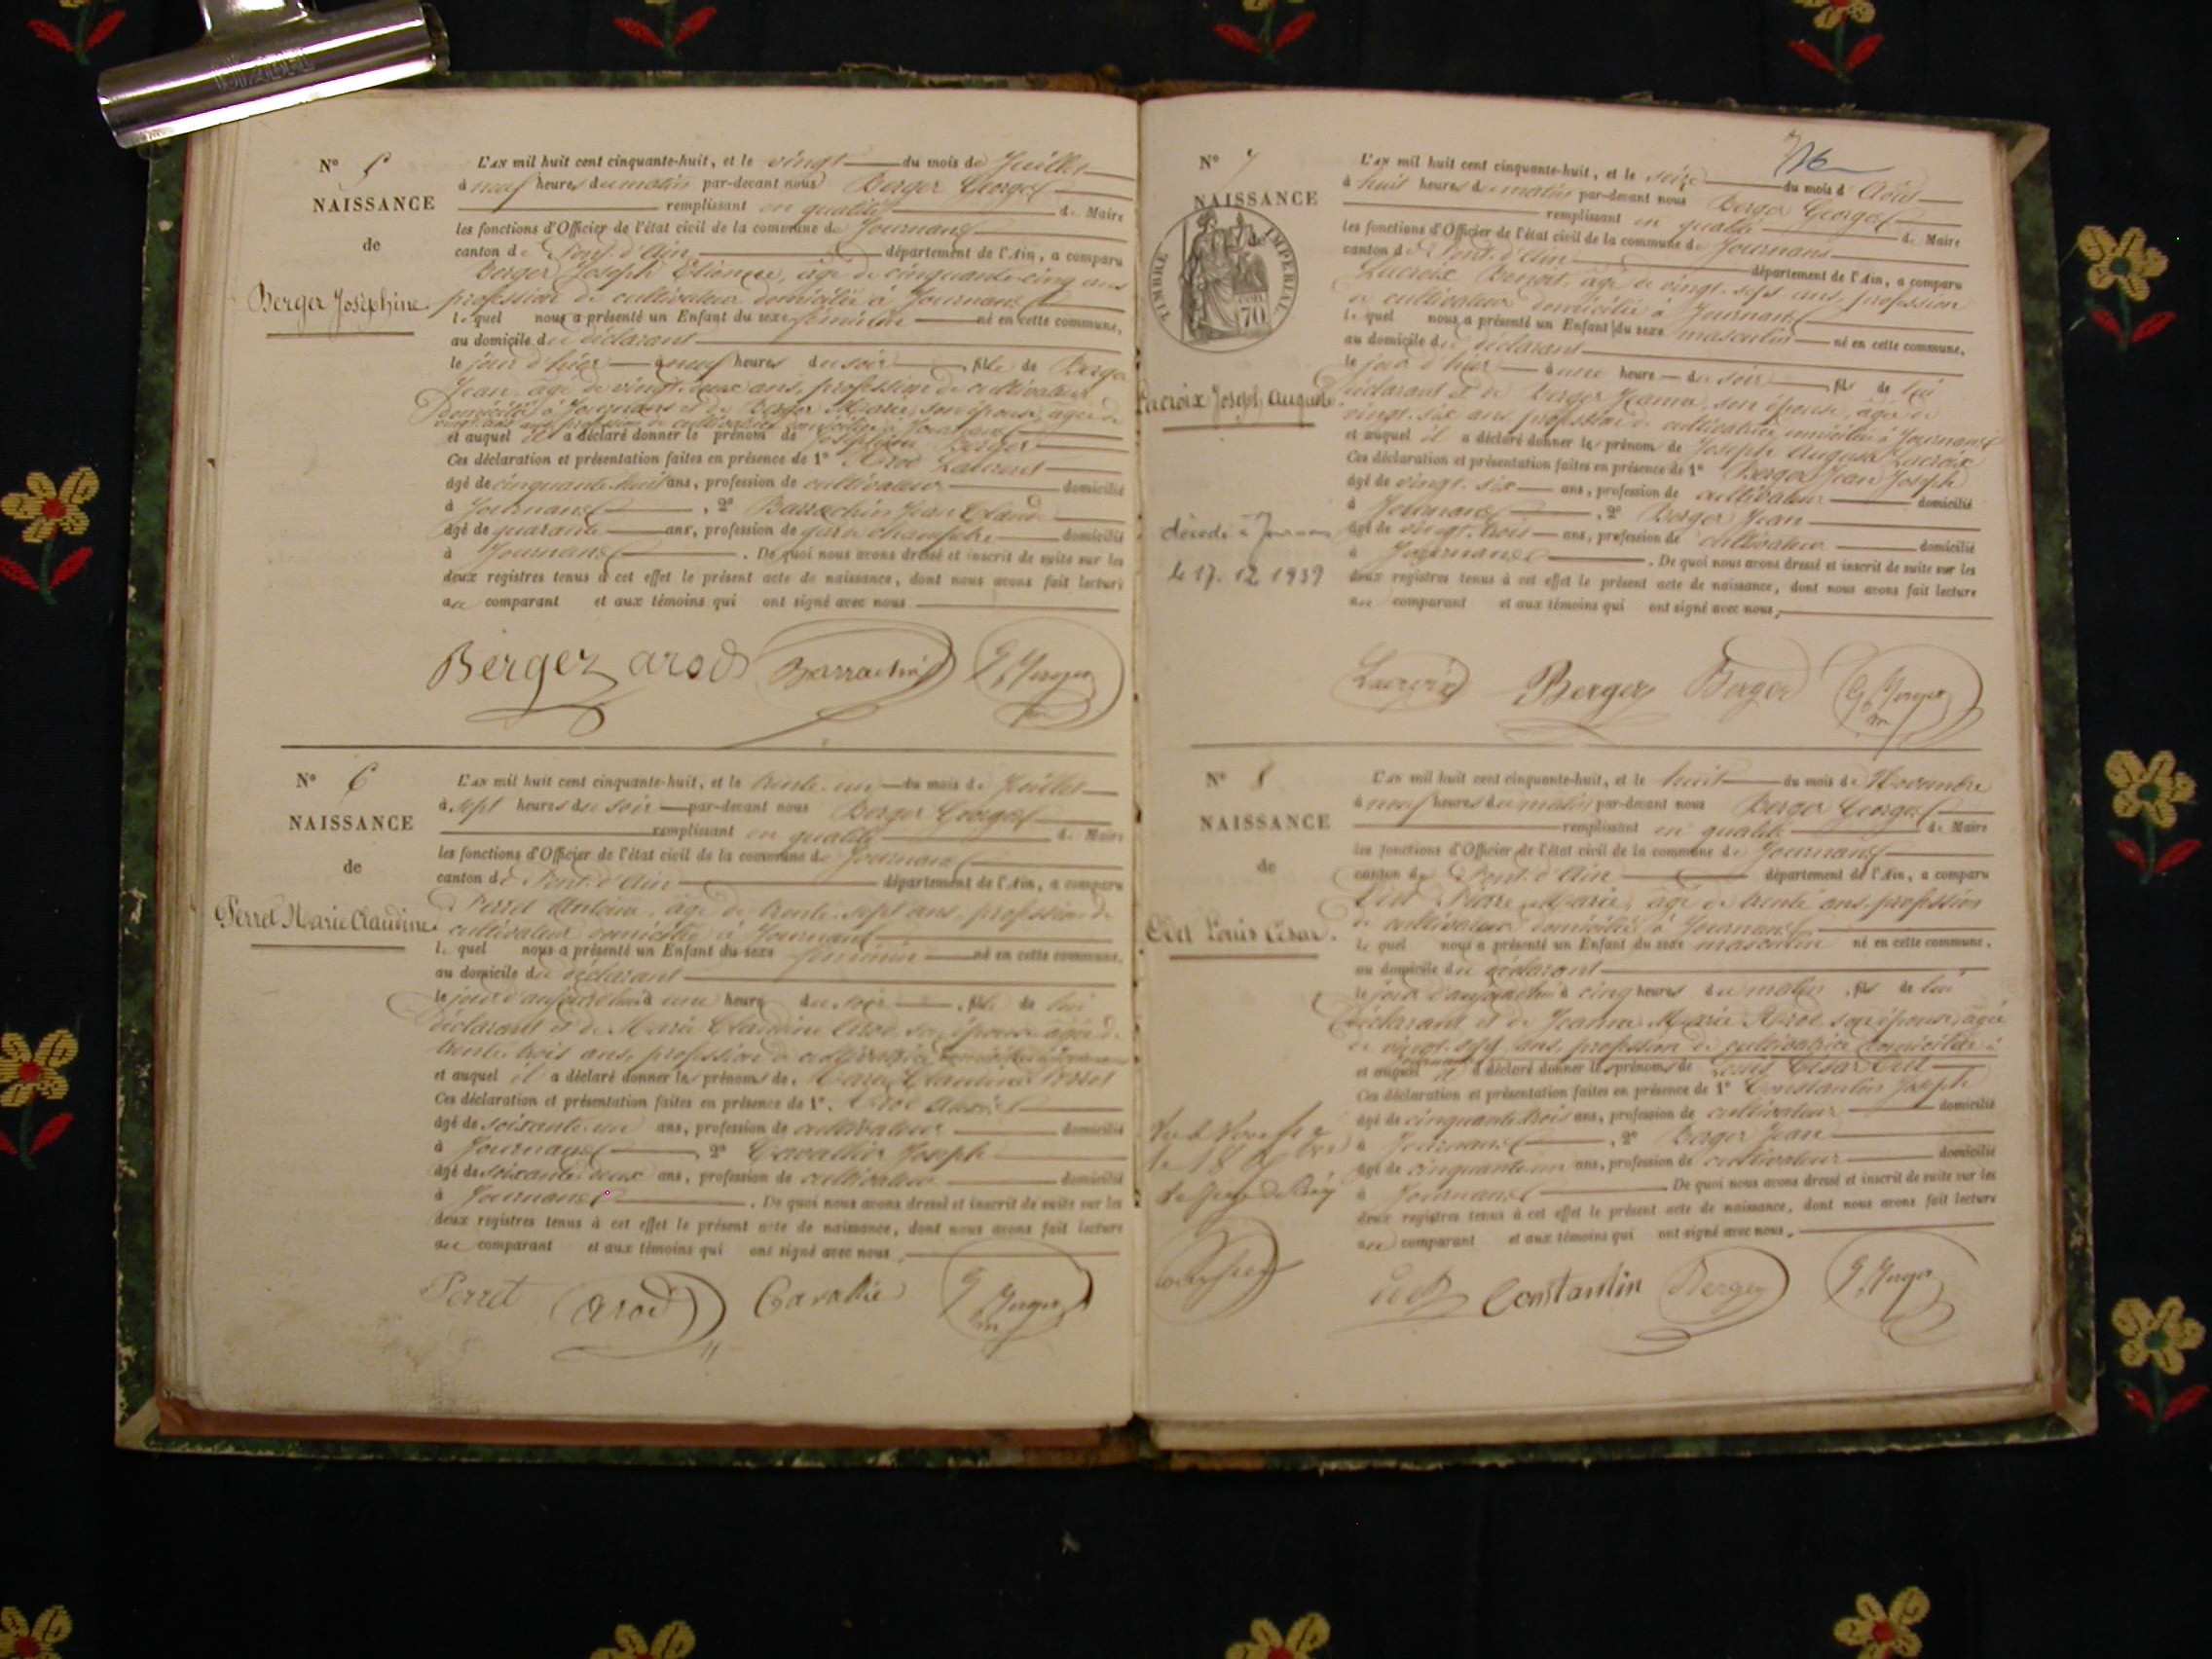 N° 5
NAISSANCE
de
Berger Joséphine
L'AN mil huit cent cinquante-huit, et le vingt du mois de Juillet
à neuf heures du matin par-devant nous Berger Georges
remplissant en qualité de Maire
les fonctions d'Officier de l'état civil de la commune de Journans
canton de Pont-d'Ain département de l'Ain, a comparu
Berger Joseph Etienne, âgé de cinquante-cinq ans
profession de cultivateur domicilié à Journans
lequel nous a présenté un Enfant du sexe féminin né en cette commune,
au domicile du déclarant
le jour d'hier à neuf heures du soir, fille de Berger
Jean, âgé de vingt-deux ans, profession de cultivateur
domicilié à Journans et de Berger Marie, son épouse, âgée de
ans, profession de cultivatrice domiciliée à Journans
et auquel il a déclaré donner le prénom de Joséphine Berger
Ces déclaration et présentation faites en présence de 1° Arod Laurent
âgé de cinquante-huit ans, profession de cultivateur domicilié
à Journans, 2° Barrachin Jean Claude
âgé de quarante ans, profession de garde champêtre domicilié
à Journans. De quoi nous avons dressé et inscrit de suite sur les
deux registres tenus à cet effet le présent acte de naissance, dont nous avons fait lecture
au comparant et aux témoins qui ont signé avec nous
Berger arod Barrachin G Berger
N° 6
NAISSANCE
de
Perret Marie Claudine
L'AN mil huit cent cinquante-huit, et le trente-un du mois de Juillet
à sept heures du soir par-devant nous Berger Georges
remplissant en qualité de Maire
les fonctions d'Officier de l'état civil de la commune de Journans
canton de Pont-d'Ain département de l'Ain, a comparu
Perret Antoine, âgé de trente-sept ans, profession de
cultivateur domicilié à Journans
lequel nous a présenté un Enfant du sexe féminin né en cette commune,
au domicile du déclarant
le jour d'aujourd'hui à une heure du soir, fille de lui
déclarant et de Marie Claudine Arod son épouse âgée de
trente-trois ans, profession de cultivatrice
et auquel il a déclaré donner les prénoms de Marie Claudine Perret
Ces déclaration et présentation faites en présence de 1° Arod
âgé de soixante-un ans, profession de cultivateur domicilié
à Journans, 2° Cavallier Joseph
âgé de soixante-deux ans, profession de cultivateur domicilié
à Journans. De quoi nous avons dressé et inscrit de suite sur les
deux registres tenus à cet effet le présent acte de naissance, dont nous avons fait lecture
au comparant et aux témoins qui ont signé avec nous.
Perret arod Cavallié G Berger
76
N° 7
NAISSANCE
de
TIMBRE IMPERIAL
70
Lacroix Joseph Auguste
décédé à Journans
le 17.12 1939
L'AN mil huit cent cinquante-huit, et le seize du mois d'Août
à huit heures du matin par-devant nous Berger Georges
remplissant en qualité de Maire
les fonctions d'Officier de l'état civil de la commune de Journans
canton de Pont-d'Ain département de l'Ain, a comparu
Lacroix Benoit, âgé de vingt-sept ans, profession
de cultivateur domicilié à Journans
lequel nous a présenté un Enfant du sexe masculin né en cette commune,
au domicile du déclarant
le jour d'hier à une heure du soir, fils de lui
déclarant et de Berger Jeanne, son épouse, âgée de
vingt-six ans, profession de cultivatrice domiciliée à Journans
et auquel il a déclaré donner les prénom de Joseph Auguste Lacroix
Ces déclaration et présentation faites en présence de 1° Berger Jean Joseph
âgé de vingt-six ans, profession de cultivateur domicilié
à Journans, 2° Berger Jean
âgé de vingt-trois ans, profession de cultivateur domicilié
à Journans. De quoi nous avons dressé et inscrit de suite sur les
deux registres tenus à cet effet le présent acte de naissance, dont nous avons fait lecture
au comparant et aux témoins qui ont signé avec nous,
Lacroix Berger Berger G Berger
N° 8
NAISSANCE
de
Louis César
L'AN mil huit cent cinquante-huit, et le huit du mois de Novembre
à neuf heures du matin par-devant nous Berger Georges
remplissant en qualité de Maire
les fonctions d'Officier de l'état civil de la commune de Journans
canton de Pont-d'Ain département de l'Ain, a comparu
Pierre Marie, âgé de trente ans, profession
de cultivateur domicilié à Journans
lequel nous a présenté un Enfant du sexe masculin né en cette commune,
au domicile du déclarant
le jour d'aujourd'hui à cinq heures du matin, fils de lui
déclarant et de Jeanne Marie Arod son épouse, âgée
de vingt-sept ans, profession de cultivatrice domiciliée à
et auquel il a déclaré donner les prénoms de Louis César
Ces déclaration et présentation faites en présence de 1° Constantin Joseph
âgé de cinquante-trois ans, profession de cultivateur domicilié
à Journans, 2° Berger Jean
âgé de cinquante-un ans, profession de cultivateur domicilié
à Journans. De quoi nous avons dressé et inscrit de suite sur les
deux registres tenus à cet effet le présent acte de naissance, dont nous avons fait lecture
au comparant et aux témoins qui ont signé avec nous.
Constantin Berger G Berger